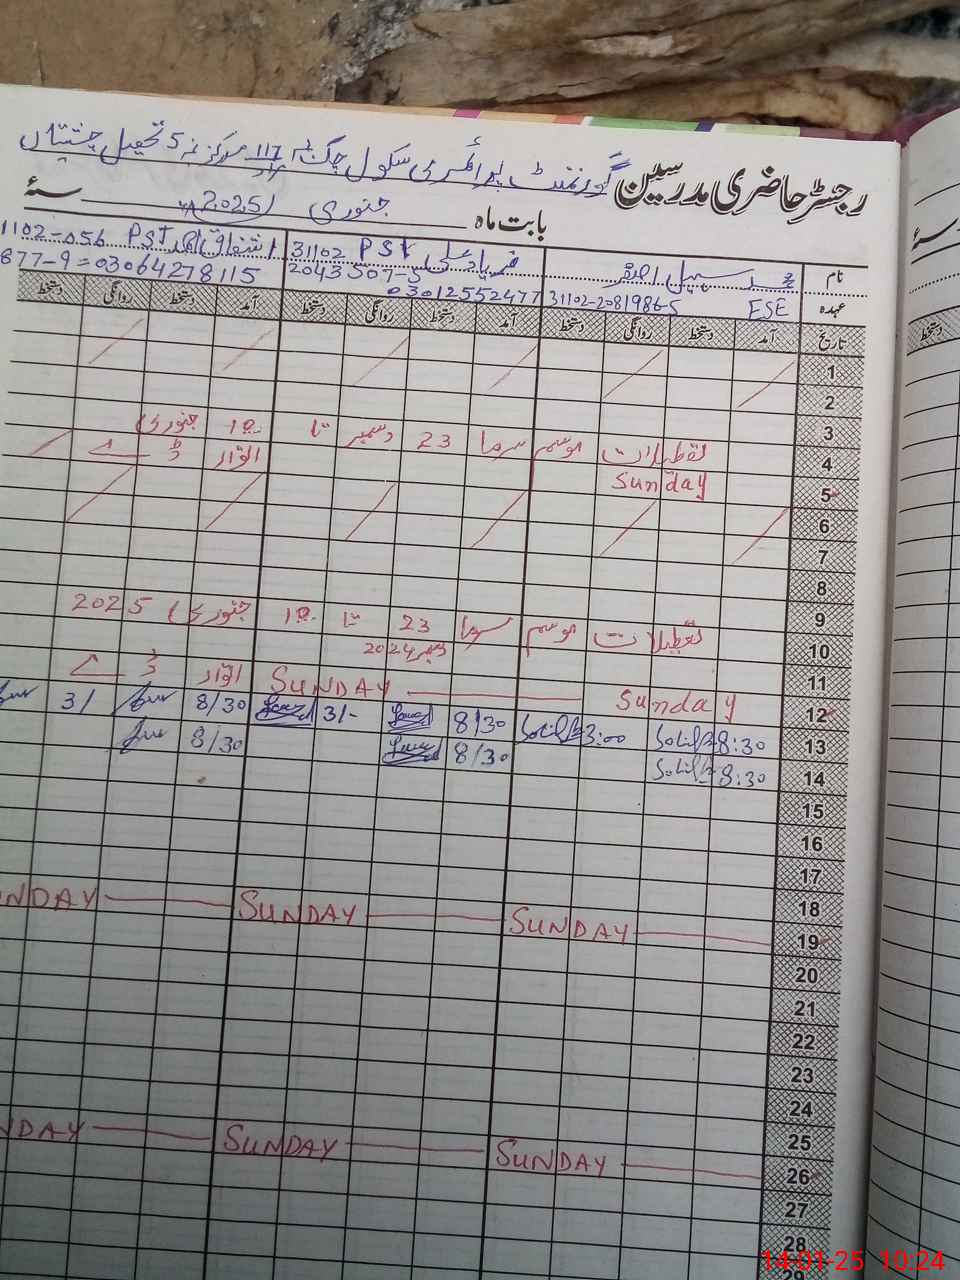 رجسٹر حاضری مدرسین گورنمنٹ پرائمری سکول چک نمبر 117 مراد مرکز نمبر 5 تحصیل چشتیاں
بابت ماہ جنوری 2025 سنہ
نام
محمد سہیل اصغر
31102 PST
اشفاق احمد PST 1102-056
2043507-5
877-9=03064278115
عہدہ ESE 31102-2081986-5
03012552477
تاریخ آمد دستخط روانگی دستخط آمد دستخط روانگی دستخط آمد دستخط روانگی دستخط
دستخط
1
2
3
تعطیلات موسم سرما 23 دسمبر تا 10 جنوری
4
Sunday اتوار
5
6
7
8
9
تعطیلات موسم سرما 23 تا 10 جنوری 2025
دسمبر 2024
10
11
Sunday SUNDAY اتوار
12
13 8:30 3:00 8/30 3/- 8/30 3/
14 8:30 8/30 8/30
15
16
17
18
19 SUNDAY SUNDAY NDAY
20
21
22
23
24
25
26 SUNDAY SUNDAY NDAY
27
28
29
14-01-25 10:24